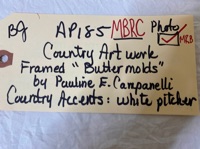 BJ AP185 MBRC Photo
MCB
Country Artwork
Framed "Butter molds"
by Pauline E. Campanelli
Country Accents: white pitcher